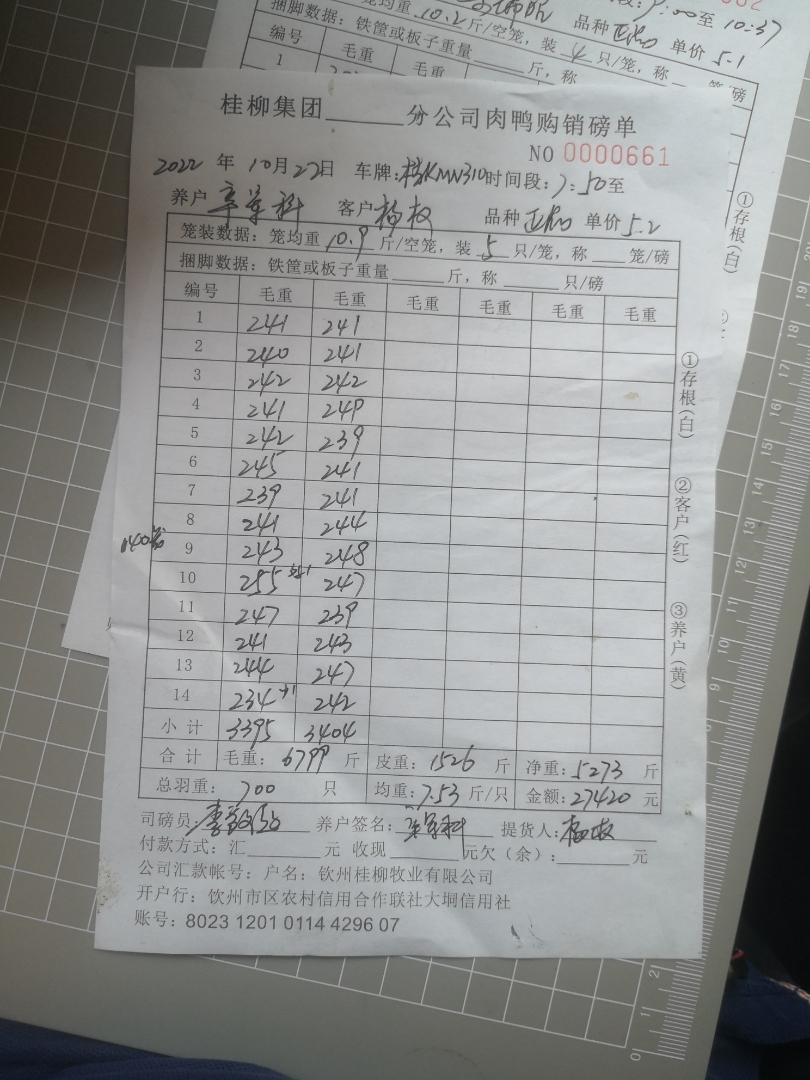 10.2 斤/空笼，装 4 只/笼，称 笼/磅
品种 正 单价 5.1
9:00至 10:37
捆脚数据：铁筐或板子重量 斤，称
编号 毛重 毛重
1
①存根(白)
桂柳集团 分公司肉鸭购销磅单
NO 0000661
2022 年 10月27日 车牌：桂KMN310 时间段：7:50至
养户 客户 杨权 品种 正 单价 5.2
笼装数据：笼均重 10.9 斤/空笼，装 5 只/笼，称 笼/磅
捆脚数据：铁筐或板子重量 斤，称 只/磅
编号 毛重 毛重 毛重 毛重 毛重 毛重
1 241 241
2 240 241
3 242 242
4 241 249
5 242 239
6 245 241
7 239 241
8 241 244
9 243 248
140笼
10 255 247
11 247 239
12 241 243
13 244 247
14 234 +1 242
小计 3395 3404
合计 毛重：6799 斤 皮重：1526 斤 净重：5273 斤
总羽重：700 只 均重：7.53 斤/只 金额：27420 元
司磅员： 养户签名： 提货人：杨权
付款方式：汇 元 收现 元欠（余）： 元
公司汇款帐号：户名：钦州桂柳牧业有限公司
开户行：钦州市区农村信用合作联社大垌信用社
账号：8023 1201 0114 4296 07
①存根(白)
②客户(红)
③养户(黄)